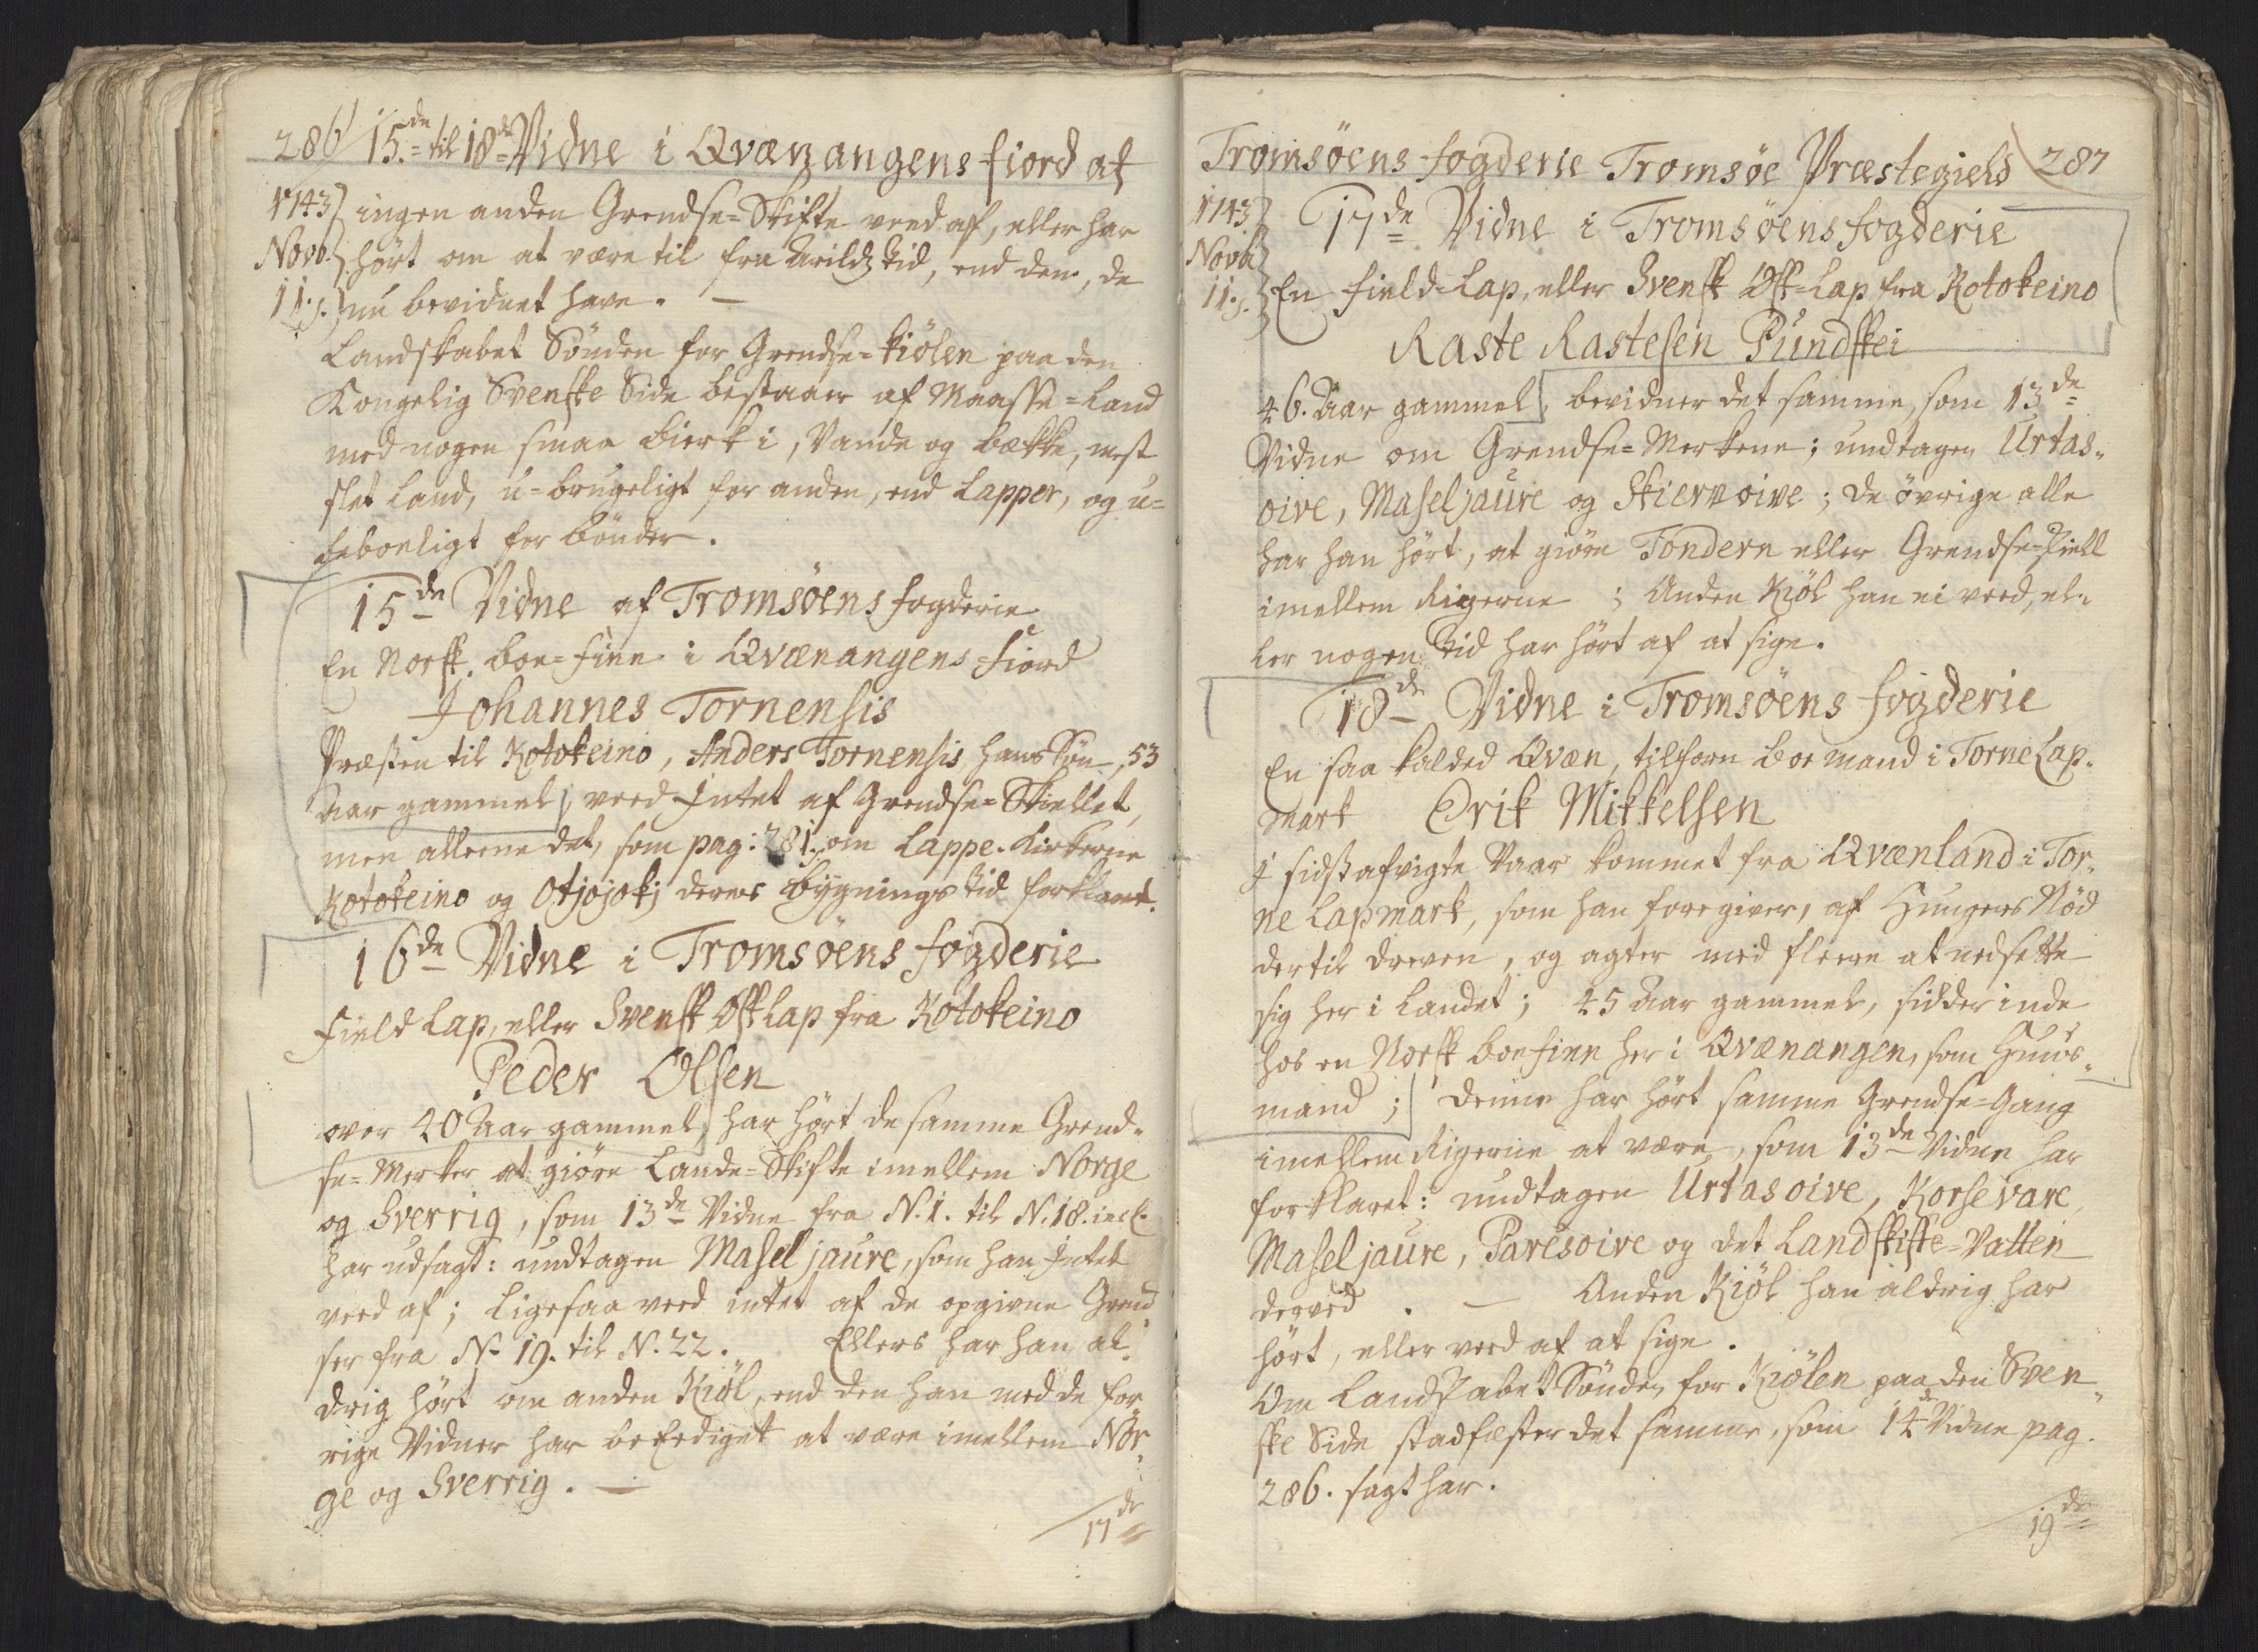 286 15de til 18de Vidne i Qvænangens fiord af
1743 ingen anden Grendse-Skifte veed af, eller har
Novb. hört om at være til fra Arildz tid, end den, de
11. nu bevidnet have. —
Landskabet Sönden for Grendse-Kiölen paa den
Kongelig Svenske Side bestaaer af Maasse-Land
med nogen smaa Bierk i, Vande og Bække, mest
slet Land, u-brugeligt for anden, end Lapper, og u-
beboeligt for Bönder.
15de Vidne af Tromsöens fogderie
En Norsk. boe-Finn i Qvænangens-Fiord
Johannes Tornensis
Præsten til Kotokeino, Anders Tornensis, hans Sön, 53
Aar gammel, veed Intet af Grendse-Skiellet,
men alleene det, som pag: 281. om Lappe-Kirkerne
Kotokeino og Otjojokj deres Bygnings tid forklaret.
16de Vidne i Tromsöens fogderie
Field Lap, eller Svensk Ostlap fra Kotokeino
Peder Olsen
over 40 Aar gammel, har hört de samme Grend-
se-Merker at giöre Lande-Skifte imellem Norge
og Sverrig, som 13de Vidne fra N. 1. til N. 18. incl.
har udsagt: undtagen Masel jaure, som han Intet
veed af; Ligesaa veed intet af de opgivne Grend
ser fra N. 19. til N. 22. Ellers har han al-
drig hört om anden Kiöl, end den han med de for-
rige Vidner har beEediget at være imellem Nor-
ge og Sverrig. —
17de
Tromsöens fogderie Tromsöe Præstegield 287
1743 17de Vidne i Tromsöens fogderie
Novb.
11. En Field-Lap, eller Svensk Ost-Lap fra Kotokeino
Raste Rastesen Pundskei
46. Aar gammel, bevidner det samme, som 13de
Vidne om Grendse-Merkene; undtagen Urtas-
oive, Maseljaure og Skiervoive; de övrige alle
har han hört, at giöre Tondern eller Grendse-Fiell
imellem Rigerne; Anden Kiöl han ei veed, el-
ler nogen tid har hört af at sige.
18de Vidne i Tromsöens fogderie
En saa kalded Qvæn, tilforn Boemand i Torne Lap-
mark Erik Mikkelsen
J sidstafvigte Vaar kommet fra Qvænland i Tor-
ne Lapmark, som han foregiver, af Hungers Nöd
dertil dreven, og agter med fleere at nedsette
sig her i Landet; 45 Aar gammel, sidder inde
hos en Norsk Boefinn her i Qvænangen, som Huus-
mand; denne har hört samme Grendse-Gang
imellem Rigerne at være, som 13de Vidne har
forklaret: undtagen Urtasoive, Korsevare,
Maseljaure, Paresoive og det Landskifte-Vatten
derved. — Anden Kiöl han aldrig har
hört, eller veed af at sige.
Om Landskabet Sönden for Kiölen paa den Sven-
ske Side stadfæster det samme, som 14de Vidne pag.
286. sagt har.
19de